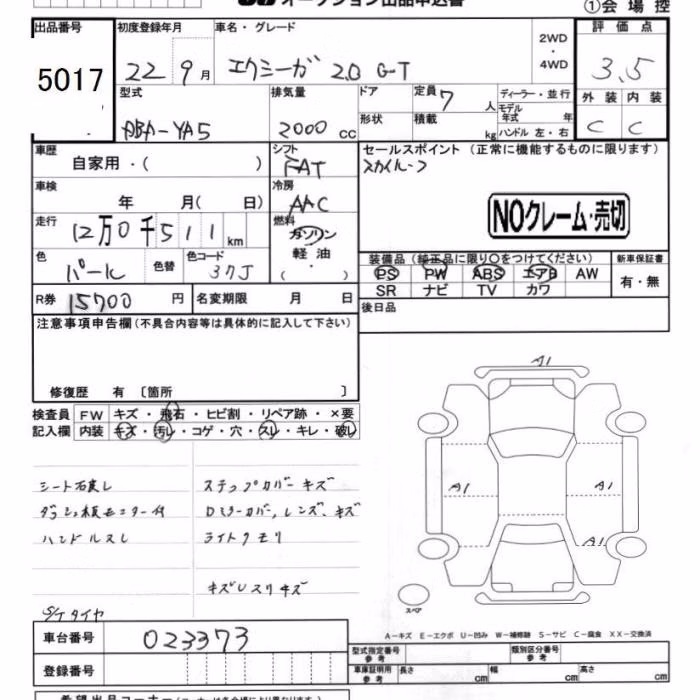 オークション出品申込書
①会場控
出品番号 初度登録年月 車名・グレード 2WD・4WD 評価点
5017 22 9月 エクシーガ 2.0 G-T 3.5
型式 排気量 ドア 定員 7人 ディーラー・並行 外装 内装
モデル年式 年
DBA-YA5 2000cc 形状 積載 kg ハンドル 左・右 C C
車歴 自家用・( ) シフト FAT セールスポイント (正常に機能するものに限ります)
スカイルーフ
車検 年 月( 日) 冷房 AAC
NOクレーム・売切
走行 12万0千511km 燃料 ガソリン
軽油
( ・ )
色 パール 色替 色コード 37J
装備品(純正品に限り○をつけてください) 新車保証書
PS PW ABS エアB AW 有・無
SR ナビ TV カワ
R券 15700円 名変期限 月 日 後日品
注意事項申告欄(不具合内容等は具体的に記入して下さい)
修復歴 有 〔箇所 〕
検査員 FW キズ・飛石・ヒビ割・リペア跡・×要
記入欄 内装 キズ・汚レ・コゲ・穴・スレ・キレ・破レ
A1
A1 A1
A1
シート石皮レ ステップカバーキズ
ダッシュ板モニター付 Dミラーカバー,レンズ、キズ
ハンドルスレ ライトクモリ
キズUスリキズ
S/Tタイヤ
スペア
A-キズ E-エクボ U-凹み W-補修跡 S-サビ C-腐食 XX-交換済
車台番号 023373
型式指定番号 参考 類別区分番号 参考
登録番号 車庫証明用 参考 長さ cm 幅 cm 高さ cm
希望出品コーナー